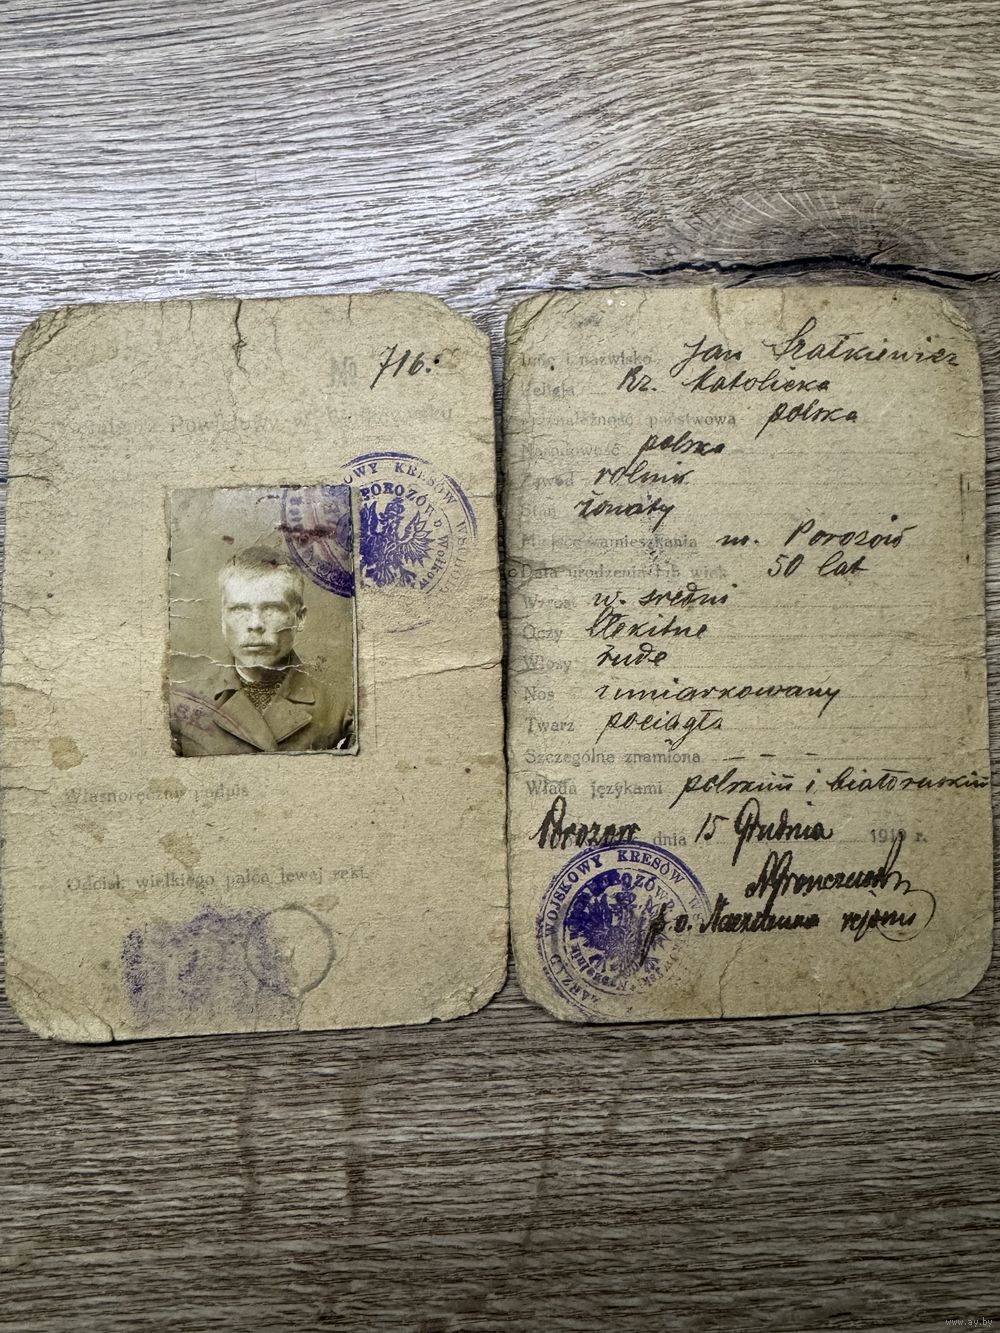 № 716.
Własnoręczny podpis
Odcisk wielkiego palca lewej ręki.
KRESÓW
POROZÓW
Imię i nazwisko Jan Szatkiewicz
Religja Rz. Katolicka
Przynależność państwowa polska
Narodowość polska
Zawód rolnik
Stan żonaty
Miejsce zamieszkania m. Porozów
Data urodzenia i b. wiek 50 lat
Wzrost w. średni
Oczy błękitne
Włosy rude
Nos umiarkowany
Twarz pociągła
Szczególne znamiona — — —
Włada językami polskim i białoruskim
dnia 15 Grudnia 1919 r.
p.o. Naczelnika rejonu
ZARZĄD WOJSKOWY KRESÓW
POROZÓW
www.ay.by